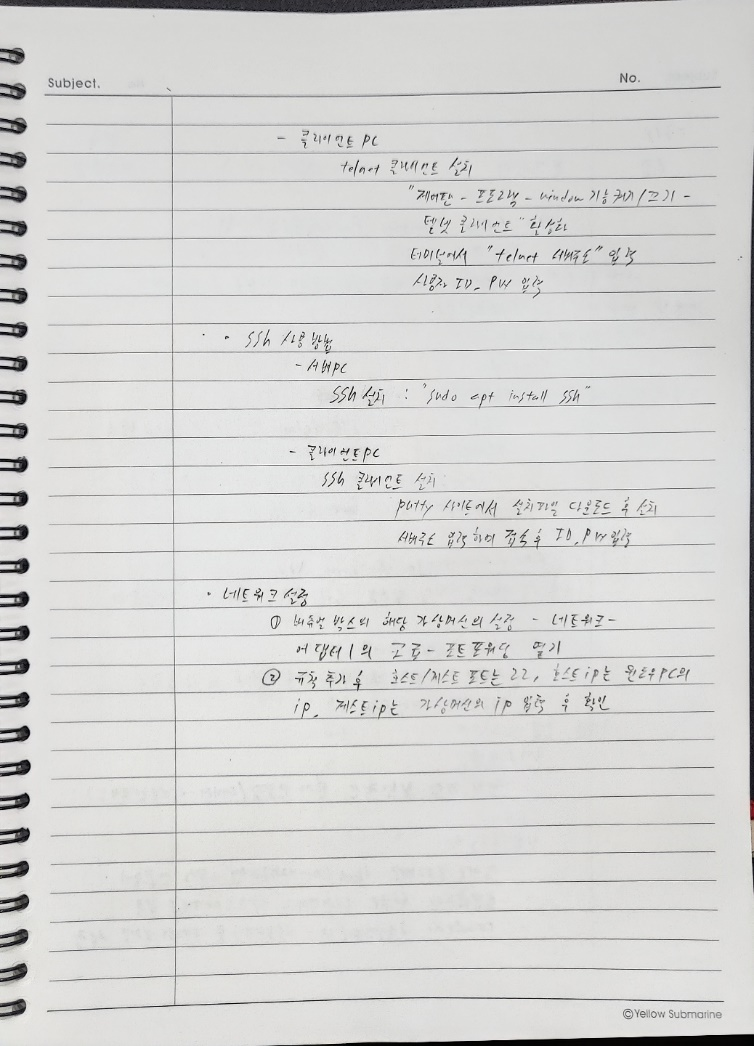 Subject.
No.
- 클라이언트 PC
telnet 클라이언트 설치
"제어판 - 프로그램 - window 기능 켜기/끄기 -
텔넷 클라이언트" 활성화
터미널에서 "telnet 서버주소" 입력
사용자 ID, PW 입력
· SSh 사용 방법
- 서버PC
SSh 설치 : "sudo apt install SSh"
- 클라이언트PC
SSh 클라이언트 설치
putty 사이트에서 설치파일 다운로드 후 설치
서버주소 입력하여 접속 후 ID, PW 입력
· 네트워크 설정
① 버츄얼 박스의 해당 가상머신의 설정 - 네트워크 -
어댑터 1의 고급 - 포트포워딩 열기
② 규칙 추가 후 호스트/게스트 포트는 22, 호스트ip는 윈도우PC의
ip, 게스트ip는 가상머신의 ip 입력 후 확인
©Yellow Submarine